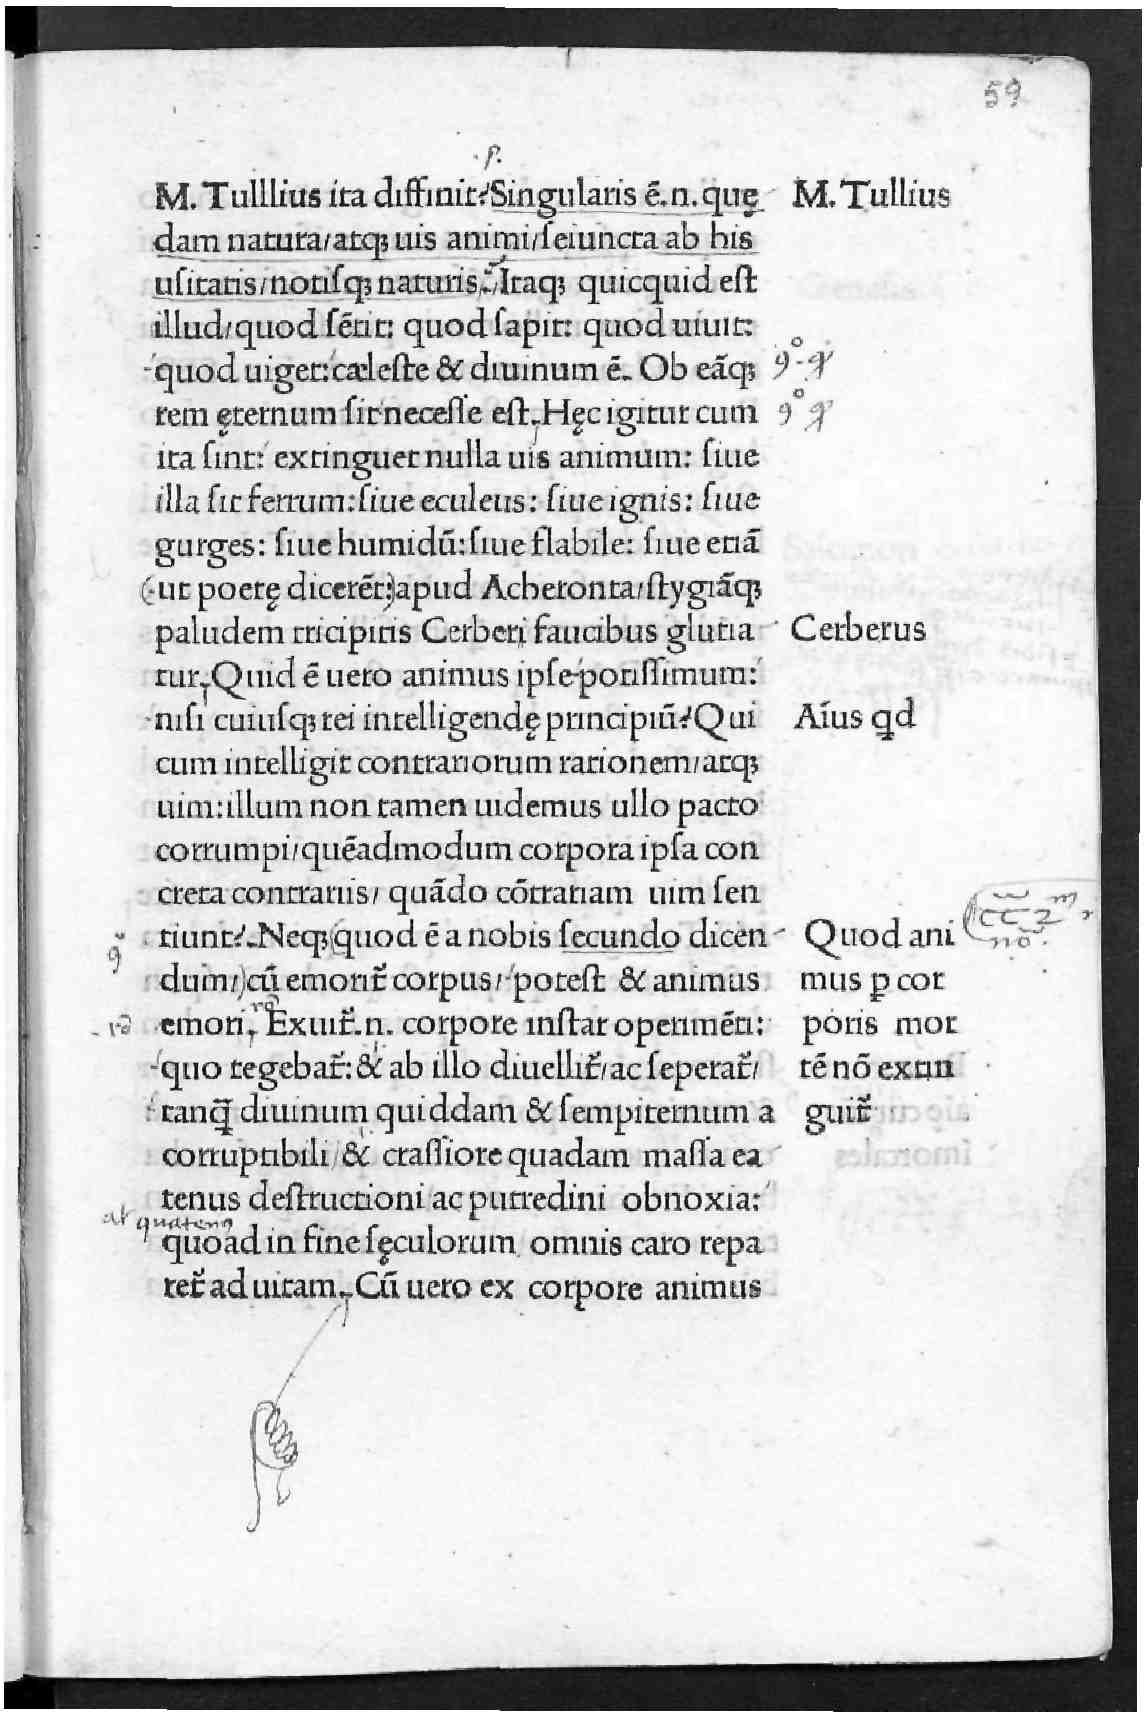 59
M. Tulllius ita diffinit: Singularis ē.n. quę
M. Tullius
dam natura/atqꝫ uis animi/ſeiuncta ab his
uſitatis/notiſqꝫ naturis. Itaqꝫ quicquid eſt
illud/quod ſētit: quod ſapit: quod uiuit:
quod uiget: cæleſte & diuinum ē. Ob eāqꝫ
rem ęternum ſit neceſſe eſt. Hęc igitur cum
ita ſint: extinguet nulla uis animum: ſiue
illa ſit ferrum: ſiue eculeus: ſiue ignis: ſiue
gurges: ſiue humidū: ſiue flabile: ſiue etiā
(ut poetę dicerēt:) apud Acheronta/ſtygiāqꝫ
paludem tricipitis Cerberi faucibus glutia
Cerberus
tur. Quid ē uero animus ipſe potiſſimum:
niſi cuiuſqꝫ rei intelligendę principiū? Qui
Aíus qd
cum intelligit contrariorum rationem/atqꝫ
uim: illum non tamen uidemus ullo pacto
corrumpi/quēadmodum corpora ipſa con
creta contrariis/ quādo cōtrariam uim ſen
tiunt? Neqꝫ (quod ē a nobis ſecundo dicen
Quod ani
dum/) cū emorit̃ corpus/ poteſt & animus
mus ꝑ cor
emori. Exuit̃.n. corpore inſtar operimēti:
poris mor
quo tegebat̃: & ab illo diuellit̃/ac ſeperat̃/
tē nō extin
tanq̄ diuinum quiddam & ſempiternum a
guit̃
corruptibili/& craſſiore quadam maſſa ea
tenus deſtructioni ac putredini obnoxia:
quatenꝰ
quoad in fine ſęculorum omnis caro repa
ret̃ ad uitam. Cū uero ex corpore animus